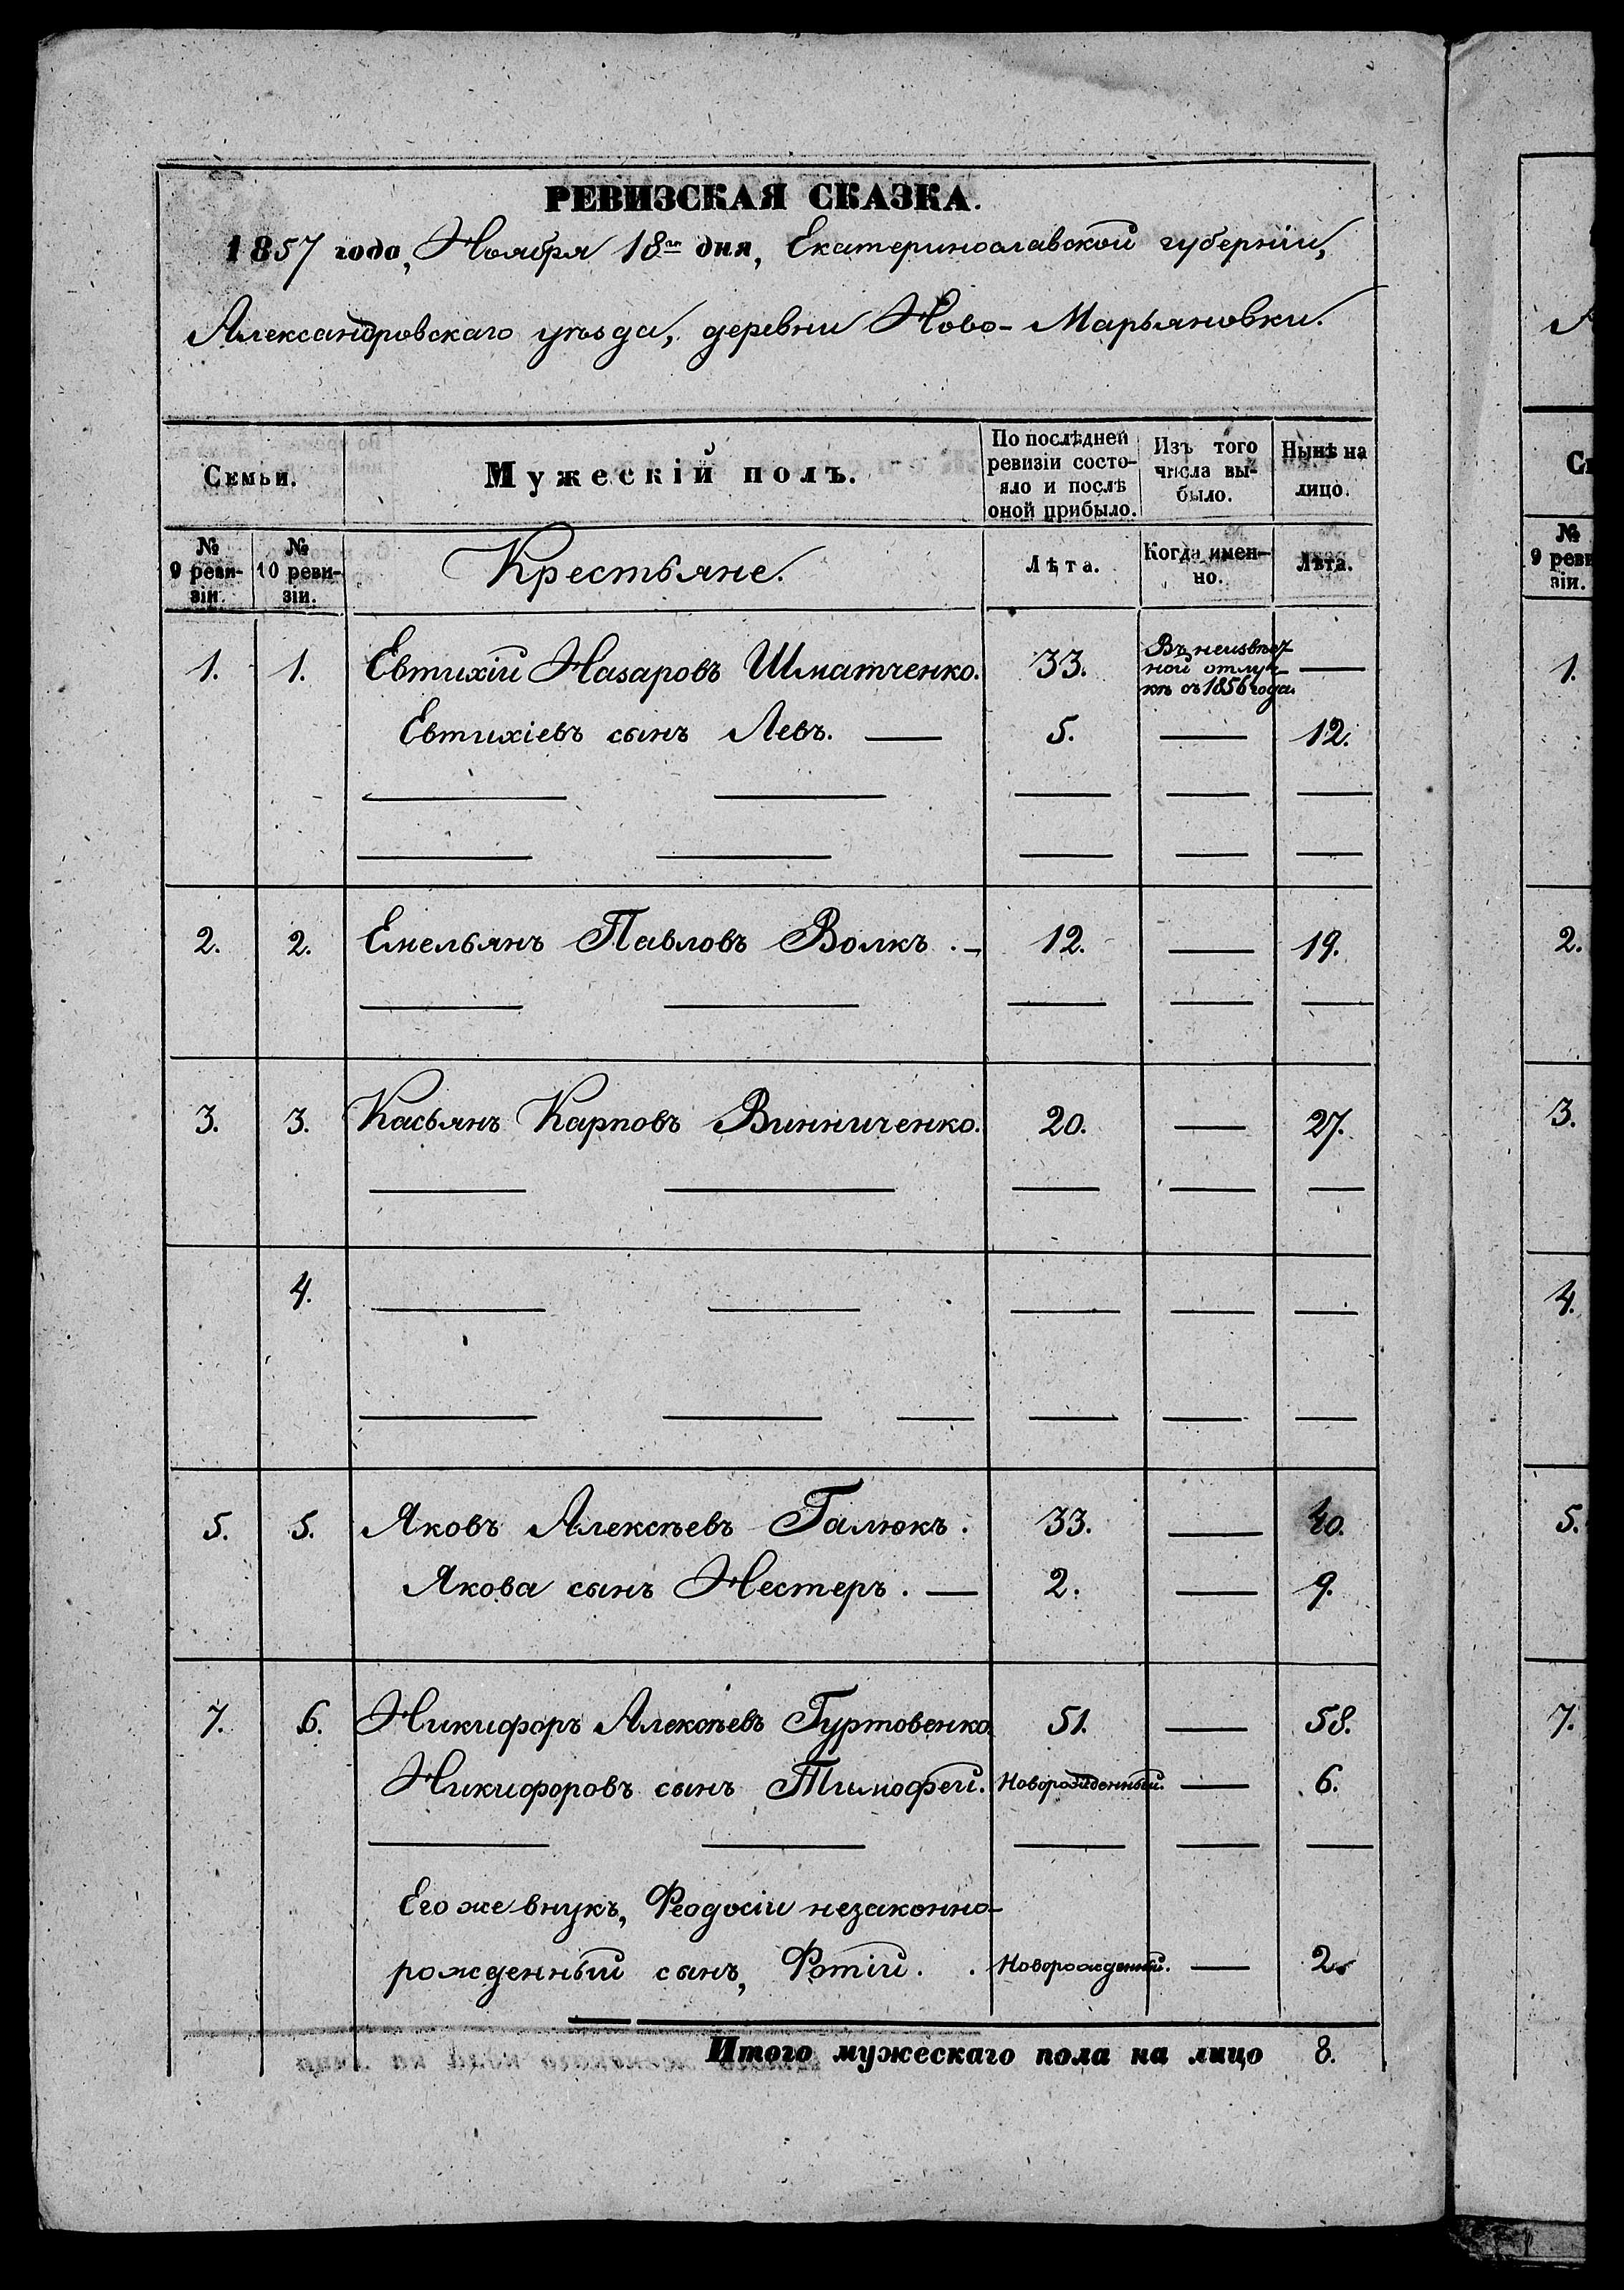 РЕВИЗСКАЯ СКАЗКА.
1857 года, Ноября 18го дня, Екатеринославской губерніи,
Александровскаго уѣзда, деревни Ново-Марьяновки.
Семьи. Мужескій полъ. По послѣдней ревизіи состо-яло и послѣ оной прибыло. Изъ того числа вы-было. Нынѣ на лицо.
№ 9 реви-зіи. № 10 реви-зіи. Крестьяне. Лѣта. Когда имен-но. Лѣта.
1. 1. Евтихій Назаровъ Шматченко. 33. Въ неизвѣст-ной отлуч-кѣ съ 1856 года. —
Евтихіевъ сынъ Левъ. — 5. — 12.
2. 2. Емельянъ Павловъ Волкъ. — 12. — 19.
3. 3. Касьянъ Карповъ Винниченко. 20. — 27.
4.
5. 5. Яковъ Алексѣевъ Галюкъ. 33. — 40.
Якова сынъ Нестеръ. — 2. — 9.
7. 6. Никифоръ Алексѣевъ Гуртовенко 51. — 58.
Никифоровъ сынъ Тимофей. Новорожденный. — 6.
Его же внукъ, Феодосіи незаконно-
рожденный сынъ, Фотій. . Новорожденный. — 2.
Итого мужескаго пола на лицо 8.
Сe
№ 9 реви зіи.
1.
2.
3.
4.
5.
7.